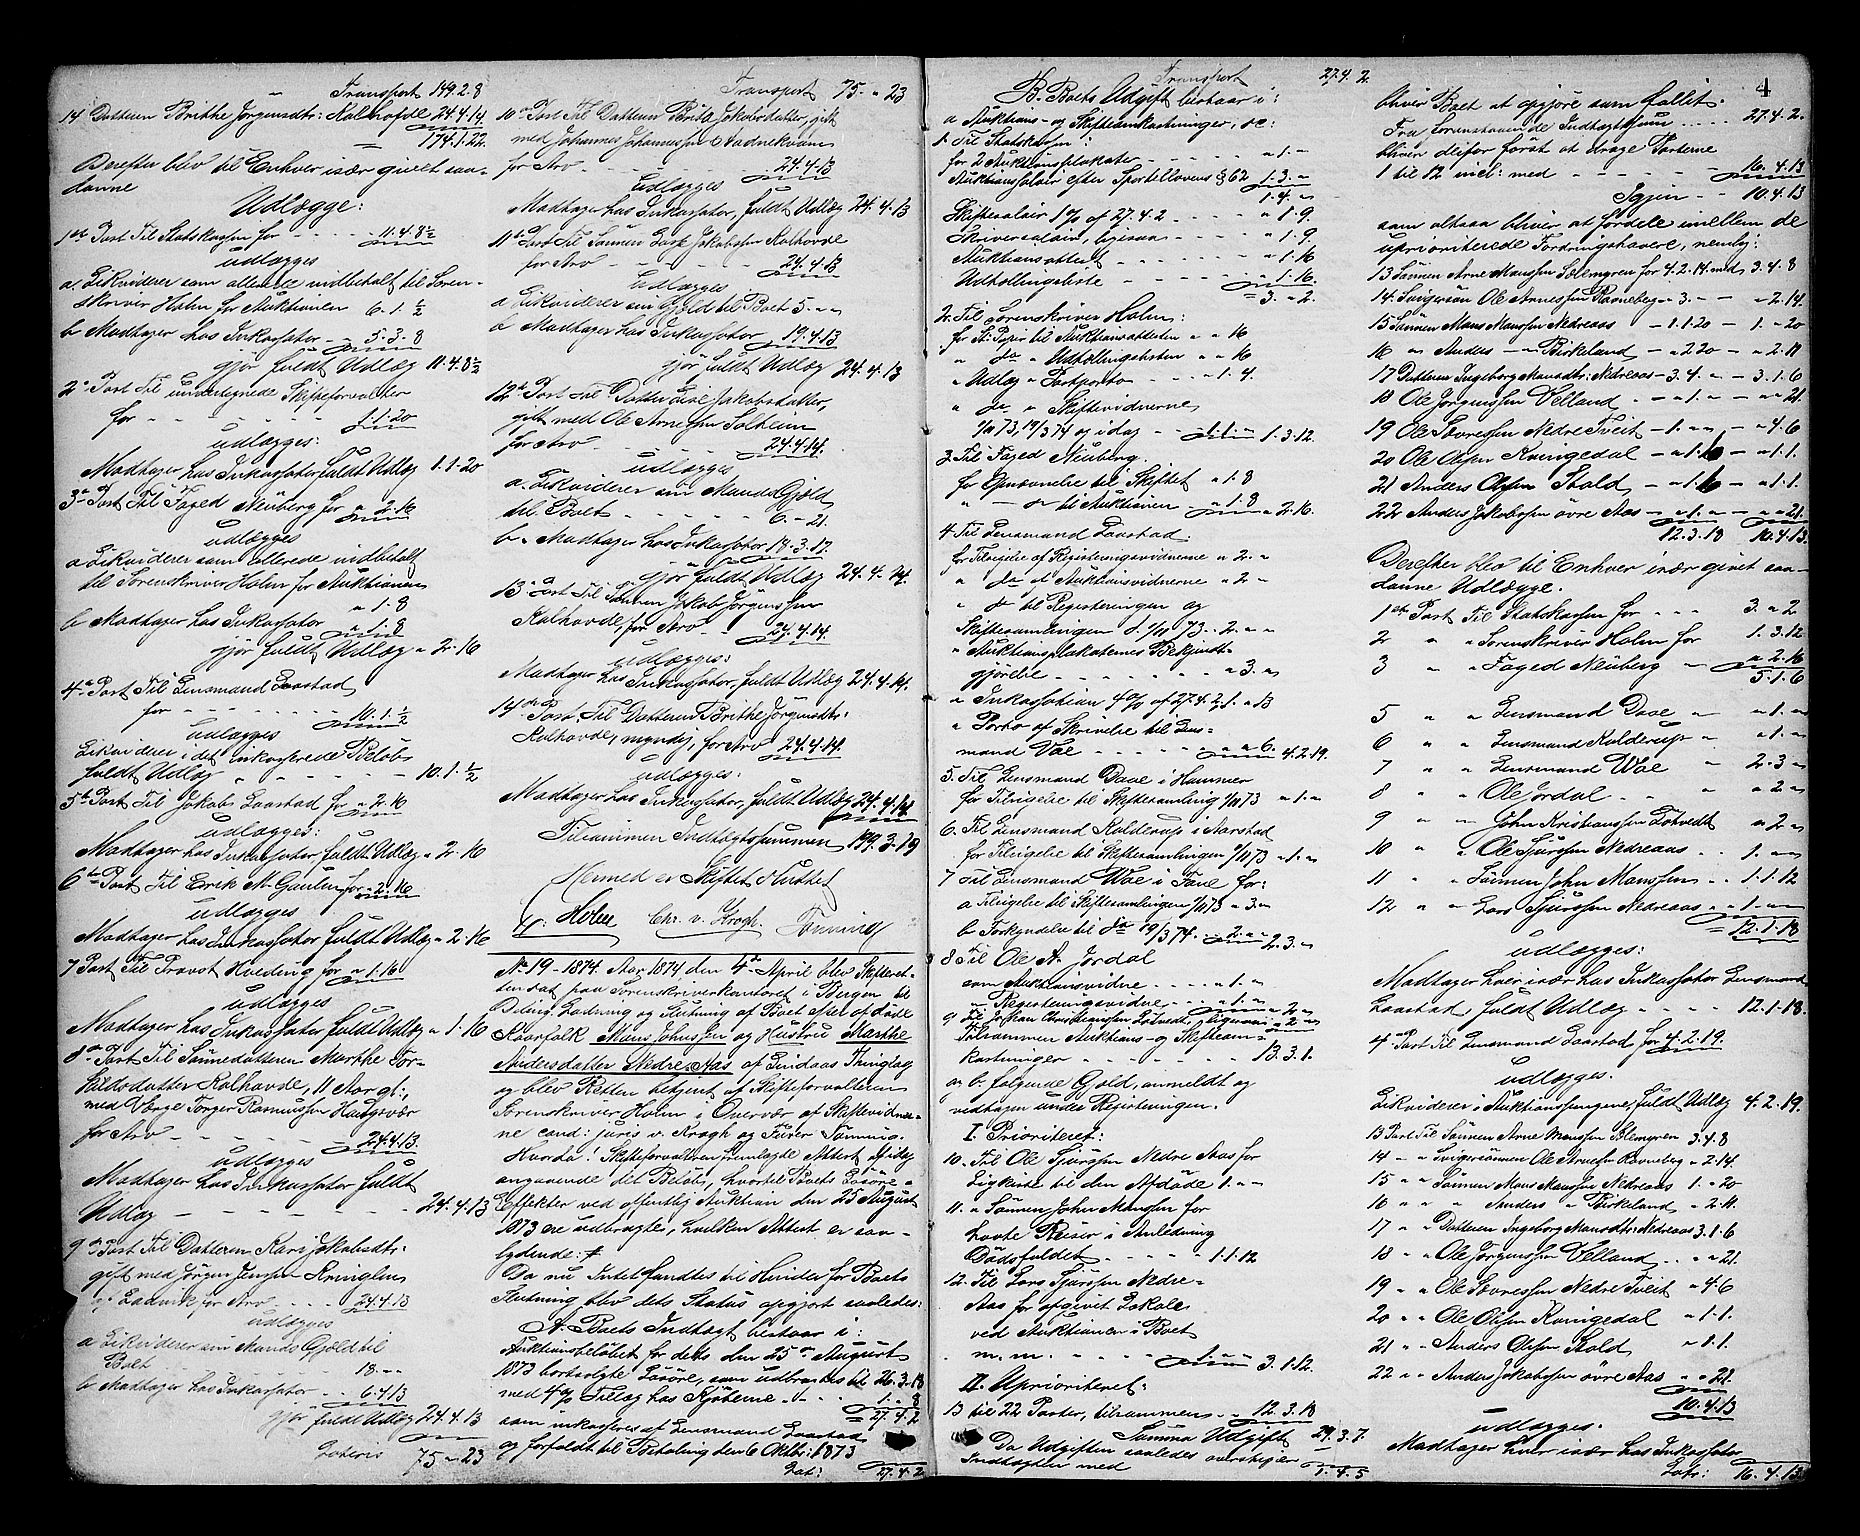 Transport 149.2.8
14 Datteren Brithe Jörgensdtr: Kalhofde 24.4.14.
174.1.22.
Derefter blev til Enhver især givet saa-
danne
Udlægge:
1ste Post Til Statskassen for - - - - 11.4.8½
udlægges
a. Likviderer som allerede indbetalt til Soren-
skriver Holm for Auktionen 6.1.½
b. Modtager hos Inkassator - - 5.3.8
gjør fuldt Udlæg 11.4.8½
2den Post Til undertegnede Skifteforvalter
for - - - - - - 1.1.20
udlægges:
Modtager hos Inkassator fuldt Udlæg 1.1.20
3die Post Til Foged Neuberg for " 2.16
udlægges
a. Likviderer som allerede indbetalt
til Sorenskriver Holm for Auktionen
" 1.8
b. Modtager hos Inkassator " 1.8
gjør fuldt Udlæg " 2.16
4de Post Til Lensmand Laastad
for - - - - - - - 10.1.½
udlægges
Likviderer i det inkasserede Beløb
fuldt Udlæg - - - - - - 10.1.½
5te Post Til Jakob Laastad for " 2.16
udlægges:
Modtager hos Inkassator, fuldt Udlæg " 2.16
6te Post Til Erik M. Gaulen for " 2.16
udlægges
Modtager hos Inkassator fuldt Udlæg " 2.16
7 Post Til Provst Hveding for " 1.16
udlægges
Modtager hos Inkassator fuldt Udlæg " 1.16
8de Post Til Sønnedatteren Marthe Tor-
kildsdatter Kalhovde, 11 Aar gl:,
med Værge Torger Rasmussen Haugsvær
for Arv - - - - - - 24.4.13.
udlægges
Modtager hos Inkassator fuldt
Udlæg - - - - - - - 24.4.13
9de Post Til Datteren Kari Jakobsdtr:
gift med Jörgen Jensen Kringlen
for Arv . . . . 24.4.13
udlægges
a Likviderer sin Mands Gjæld til
Boet - - - - - 18.--
b Modtager hos Inkassator . . 6.4.13
gjør fuldt Udlæg 24.4.13
Lateris 75 " 23
Transport 75. " 23
10de Post Til Datteren Brita Jakobsdatter, gift
med Johannes Johannessen Vadnekvam
for Arv . - - - - - - 24.4.13
Udlægges
Modtager hos Inkassator, fuldt Udlæg 24.4.13
11te Post Til Sønnen Jakobsen Kalhovde
for Arv - - - - - - 24.4.13
Udlægges
a Likviderer sin Gjæld til Boet 5 - " "
b Modtager hos Inkassator 19.4.13
gjør fuldt Udlæg 24.4.13
12te Post Til Datter Lise Jakobsdatter,
gift med Ole Arnesen Solheim
for Arv - - - - - 24.4.14.
udlægges
a. Likviderer sin Mands Gjæld
til Boet - - - - - 6.-21.
b. Modtager hos Inkassator 18.3.17.
gjør fuldt Udlæg 24.4.14
13de Post Til Sønnen Jakob Jörgensen
Kalhovde, for Arv - - 24.4.14
udlægges:
Modtager hos Inkassator, fuldt Udlæg 24.4.14.
14de Post, Til Datteren Brithe Jörgensdtr:
Kalhovde, myndig, for Arv 24.4.14.
udlægges:
Modtager hos Inkassator, fuldt Udlæg 24.4.14
Tilsammen Indtægtssummen 199.3.19
Hermed er Skiftet sluttet
H: Holm Chr. v. Krogh. Tönning
No 19 - 1874. Aar 1874 den 4de April blev Skifteret-
ten sat paa Sorenskriverkontoret i Bergen til
Deling, Ladning og Slutning af Boet efter afdöde
Kaarfolk Mons Johnsen og Hustru Marthe
Andersdatter Nedre Aas af Lindaas Thinglag
og blev Retten betjent af Skifteforvalteren
Sorenskriver Holm i Overvær af Skiftevidne-
ne cand: juris v. Krogh og Furer Tönning.
Hvorda! Skifteforvalteren fremlagde Attest Vidg
angaaende det Beløb, hvortil Boets Løsöre-
Effekter ved offentlig Auktion den 25 August
1873 ere udbragte, hvilken Attest er saa-
lydende: ⸗
Da nu Intet fandtes til Hinder for Boets
Slutning blev dets Status opgjort saaledes:
A. Boets Indtægt bestaar i:
Auktionsbeløbet for dets den 25de August
1873 bortsolgte Løsöre, som udbragtes til 26.3.18
med 4 % Tillæg hos Kjöberne - " - 1. " 8
= 27.4.2
som inkasseres af Lensmand Laastad
og forfaldt til Betaling den 6 Oktbr: 1873
Lat: 27.4.2
4
Transport 27.4.2.
B. Boets Udgift bestaar i:
a Auktions- og Skifteomkostninger, sc:
1. Til Statskassen:
for 2 Auktionsplakater - - - - - - " 1. -
Auktionssalair efter Sportellovens § 62 1.3. "
1.4. "
Skiftesalair 1% af 27.4.2 - - - - " 1.9.
Skriversalair, ligesaa - - - - " 1.9
Auktionsattest - - - - - - " 1.16
Udtællingsliste - - - - - - " 1.16.
= 3. " 2.
2. Til Sorenskriver Holm:
for St. Papir til Auktionsattesten " " 16
" do " Udtællingslisten " " 16
" Udlæg " Postporto - - - " 1.4.
" do " Skiftevidnerne
1/10 73, 19/3 74 og idag - - 1.1. - 1.3.12.
3. Til Foged Neuberg.
for Opnævnelse til Skiftet " 1.8
" - do til Auktionen " 1.8 " 2.16.
4. Til Lensmand Laastad:
for Tilsigelse af Registeringsvidnerne " 2. "
" do di Auktionsvidnerne " 2 -
" do til Registeringen og
Skiftesamlingen d. 1/10 73. . 2. " "
" Auktionsplakaternes Bekjendt-
gjörelse - - - - - - - " 3. "
" Inkassation 4% af 27.4.2 1. " 13
" Porto af Skrivelse til Lens-
mand Voe - - - - - - " " 6. 4.2.19.
5. Til Lensmand Dave i Hammer
for Tilsigelse til Skiftesamling 1/10 73 " 1. "
6. Til Lensmand Kalderup i Aarstad
for Tilsigelse til Skiftesamlingen 1/10 73 " 1. "
7 Til Lensmand Woe i Fane for:
a Tilsigelse til Skiftesamlingen 1/10 73 " 3. "
b Forkyndelse til do 19/3 74. . 2. " " 2.3. "
8 Til Ole A. Jordal
som Auktionsvidne - - - - " 1. "
" Registeringsvidne - - - - " 1. " " 2. "
9 Til Johan Christiansen Totvedt, ligesaa " 2 "
Tilsammen Auktions- og Skifteom-
kostninger - - - - - - - 13.3.1.
og b. fölgende Gjæld, anmeldt og
vedtagen under Registeringen.
I. Prioriteret:
10. Til Ole Sjursen Nedre Aas for
Ligkiste til den Afdöde 1. " "
11. " Sønnen John Monsen for
havte Reiser i Anledning
Dödsfaldet - - - - - 1.1.12
12. Til Lars Sjursen Nedre-
Aas for afgivet Lokale
ved Auktionen i Boet
m. m. - - - - - " 1. " 3.1.12.
II. Uprioriteret:
13 til 22 Poster, tilsammen - - 12.3.18
Summa Udgift 29.3.7.
Da Udgiften saaledes overstiger
Indtægten med 1.4.5
bliver Boet at opgjöre som fallit.
Fra Foranstaaende Indtægtssum . . . . . 27.4.2.
bliver derfor först at drage Posterne
1 til 12 incl: med - - - - - 16.4.13
Igjen - 10.4.13
som altsaa bliver at fordele imellem de
uprioriterede Fordringshavere, nemlig:
13 Sønnen Arne Monsen Solemgren for 4.2.14 med 3.4.8
14. Svigersön Ole Arnessen Ravneberg " 3. " - - " 2.14.
15 Sønnen Mons Monsen Nedreaas - 1.1.20 - 1. " 20
16 " Anders - " Birkeland - " 2.20 - " 2.11
17 Datteren Ingeborg Monsdtr: Nedreaas - 3.4. " - 3.1.6
18 Ole Jörgensen Velland . - " 1. " - " " 21.
19 Ole Sevresen Nedre Tveit - 1. " " - " 4.6
20 Ole Olsen Kvingedal - " 1.16 - " 1.1.
21 Anders Olsen Stold - " 1.16 - " 1.1.
22 Anders Jakobsen övre Aas - " 1. " - " " 21.
12.3.18 10.4.13.
Derefter blev til Enhver især givet saa-
danne Udlægge.
1ste Post Til Statskassen for - - - 3. " 2
2 " " Sorenskriver Holm for 1.3.12.
3 " " Foged Neuberg - " 2.16
5.1.6
5 " " Lensmand Dave - " 1. "
6 " " Lensmand Kalderup " " 1. "
7 " " Lensmand Woe - 2.3 "
8 " " Ole Jordal - - " 2 "
9 " " John Kristiansen Totvedt " 2 "
10 " " Ole Sjursen Nedreaas - 1. " "
11 " " Sønnen John Monsen . . 1.1.12
12 " " Lars Sjursen Nedreaas " " 1. "
= 12.1.18
udlægges:
Modtager hver især hos Inkassator Lensmand
Laastad, fuldt Udlæg - - - - 12.1.18.
4de Post Til Lensmand Laastad for 4.2.19.
udlægges.
Likviderer i Auktionspengene, fuldt Udlæg 4.2.19.
13 Post Til Sønnen Arne Monsen Solemgren 3.4.8
14 - " Svigersønnen Ole Arnesen Ravneberg " 2.14.
15 " " Sønnen Mons Monsen Nedreaas 1. " 20
16 " " Anders " Birkeland " 2.11.
17 " " Datteren Ingeborg Monsdtr: Nedreaas 3.1.6
18 " " Ole Jörgensen Velland . . " " 21.
19 " " Ole Sevresen Nedre Tveit " 4.6
20 " " Ole Olsen Kvingedal " 1.1.
21 " " Anders Olsen Stold " 1.1.
22 " " Anders Jakobsen övre Aas " " 21.
10.4.13
udlægges.
Modtager hver især hos Inkassator
Lats: 10.4.13